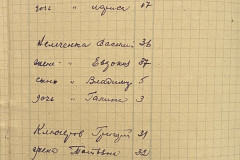 дочь " Лариса 17
Немченко Василий 36
жена " Евдокия 37
сын " Владимир 5
дочь " Галина 3
Григорий 31
жена Татьяна 32